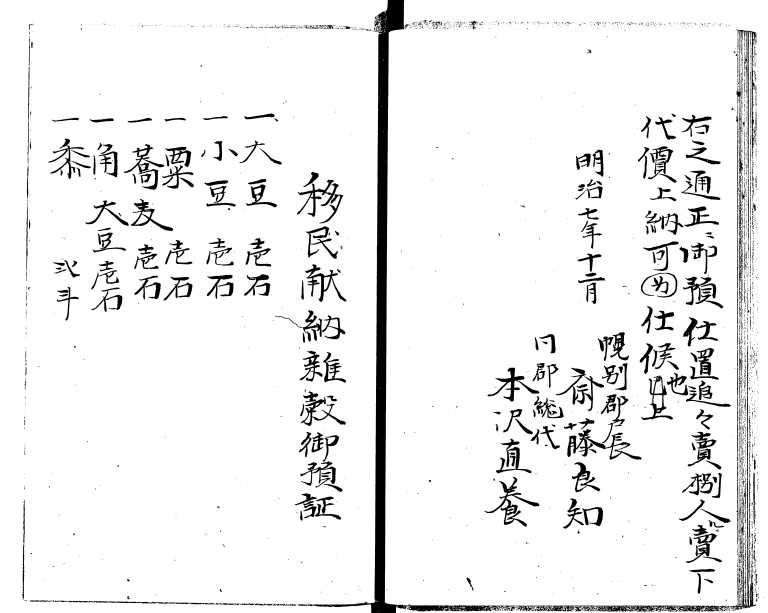 右之通正ニ御預仕置追々賣捌人ヘ賣下
代價上納可仕候也
明治七年十二月
幌別郡戸長
斎藤良知
同郡総代
本沢直養
移民献納雑穀御預証
一大豆 壱石
一小豆 壱石
一粟 壱石
一蕎麦 壱石
一角大豆壱石
一黍 弐斗